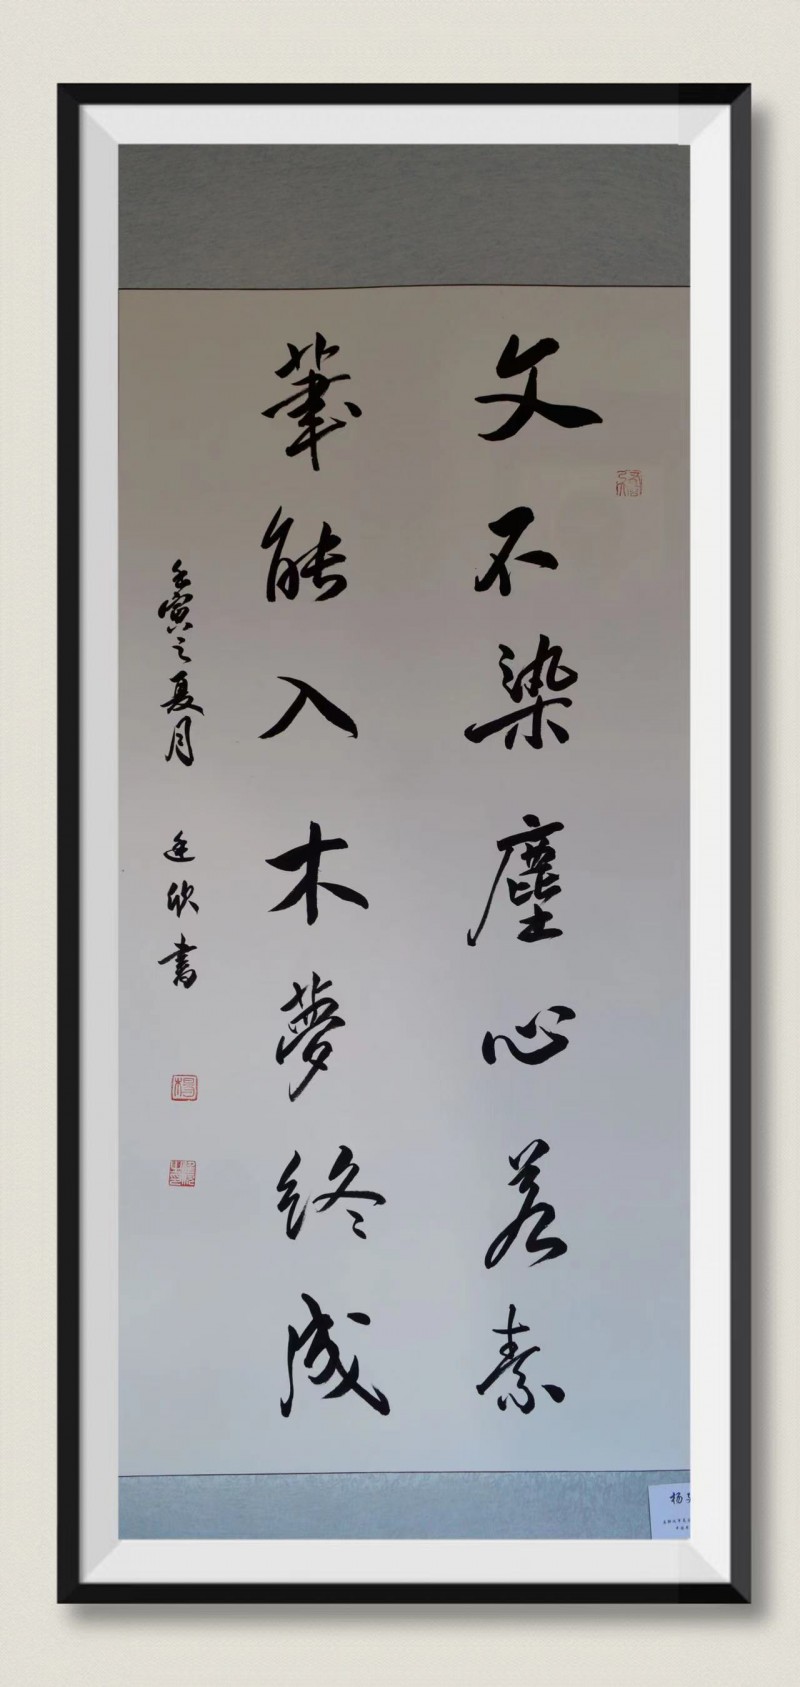 文不染塵心若素
筆能入木夢終成
壬寅之夏月 廷欣書
杨